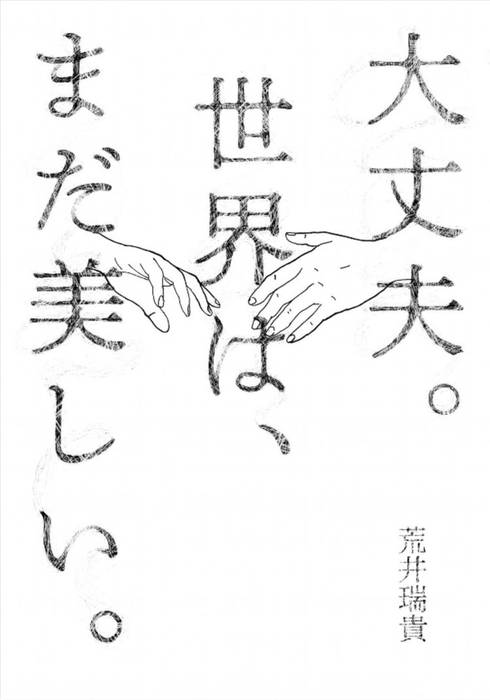 大丈夫。
世界は、
まだ美しい。
荒井瑞貴